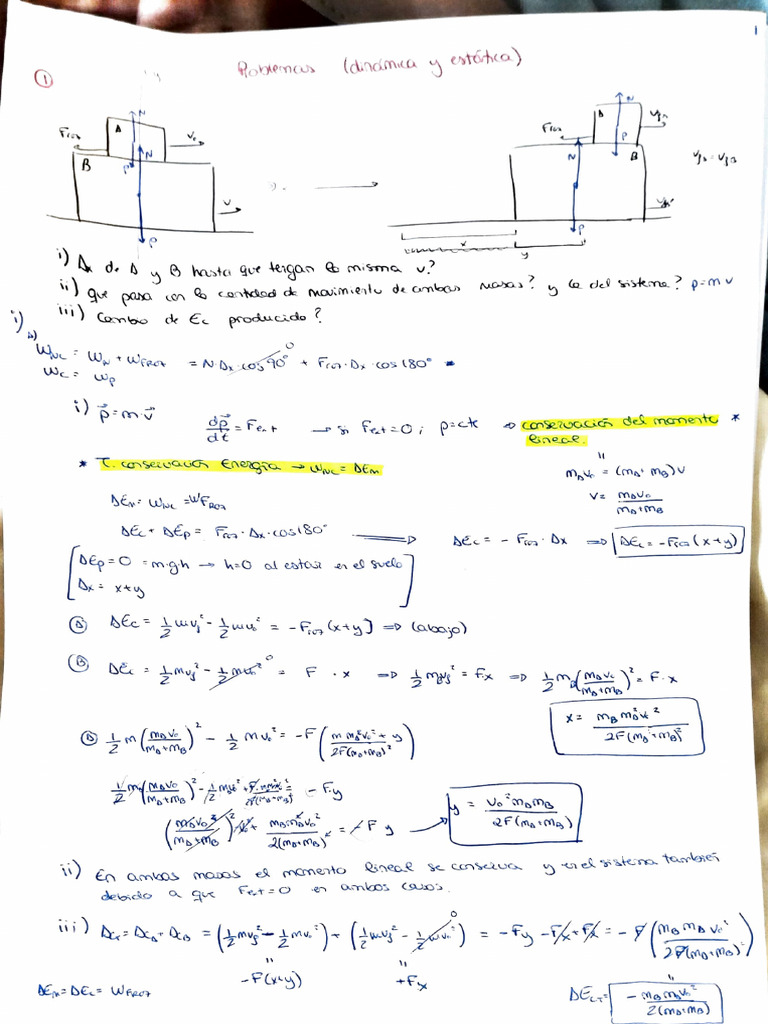 1
Problemas (dinámica y estática)
①
N
A
Froz
V₀
N
B
P
V
P
N
A
Froz
P
N
B
P
x
y
i) Δx de A y B hasta que tengan la misma v?
ii) Que pasa con la cantidad de movimiento de ambas masas? y la del sistema? p=mv
iii) Cambio de Ec producido?
i)
W_NC = W_N + W_FROZ = N·Δx·cos90° 0 + Froz·Δx·cos180°
W_C = W_P
i) p⃗ = m·v⃗ dp⃗/dt = Fext → si Fext=0; p=cte ⇒ conservación del momento lineal. *
m_A v₀ = (m_A + m_B)v
* T. conservación Energía → W_NC = ΔE_M
v = m_A v₀ / (m_A+m_B)
ΔE_M = W_NC = W_FROZ
ΔEc + ΔEp = Froz·Δx·cos180° ⟹ ΔEc = -Froz·Δx ⟹ ΔEc = -Froz(x+y)
ΔEp=0 = m·g·h → h=0 al estar en el suelo
Δx = x+y
Ⓐ ΔEc = 1/2 m v_f² - 1/2 m v₀² = -Froz(x+y) ⟹ (abajo)
Ⓑ ΔEc = 1/2 m v_f² - 1/2 m v₀² 0 = F · x ⟹ 1/2 m v_f² = Fx ⟹ 1/2 m_B (m_A v₀/(m_A+m_B))² = F·x
x = m_B m_A² v₀² / 2F(m_A+m_B)²
Ⓐ 1/2 m (m_A v₀/(m_A+m_B))² - 1/2 m v₀² = -F (m m_A² v₀²/2F(m_A+m_B)² + y)
y = v₀² m_A m_B / 2F(m_A+m_B)
ii) En ambas masas el momento lineal se conserva y en el sistema también
debido a que Fext=0 en ambos casos.
iii) = (1/2 m v_f² - 1/2 m v₀²) + (1/2 m v_f² - 1/2 m v₀² 0) = -Fy - Fx + Fx = -F (m_B m_A v₀² / 2F(m_A+m_B))
-F(x+y)
+Fx
ΔE_M = ΔEc = W_FROZ
ΔE_CT = -m_A m_B v₀² / 2(m_A+m_B)